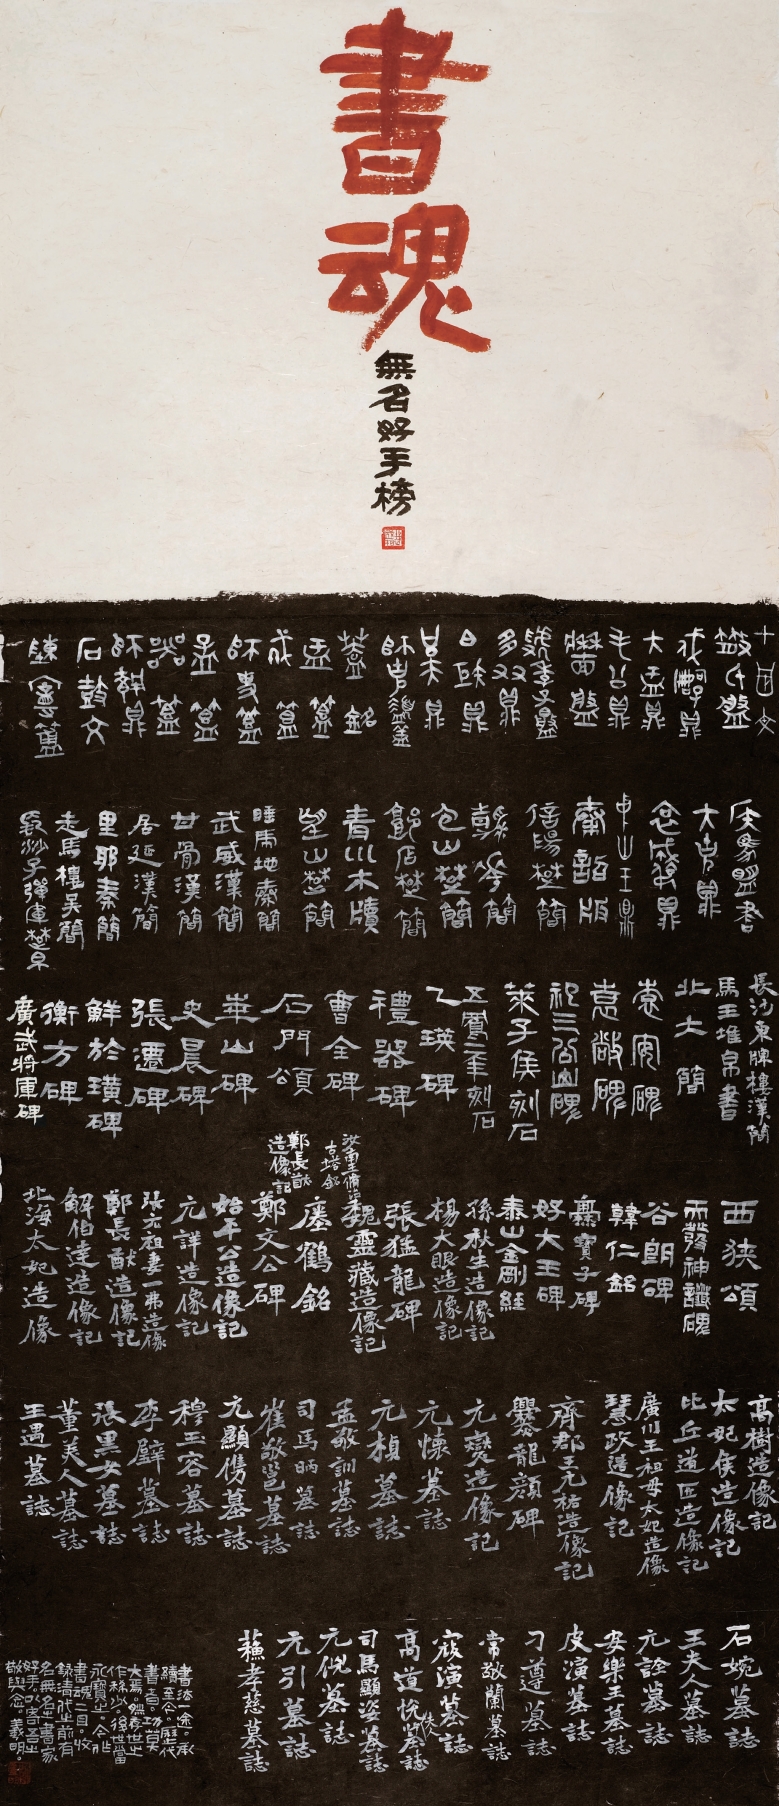 書魂
無名好手榜
散氏盤
大盂鼎
毛公鼎
日戊鼎
石鼓文
侯馬盟書
中山王鼎
秦詔版
信陽楚簡
包山楚簡
青川木牘
望山楚簡
睡虎地秦簡
武威漢簡
甘骨漢簡
居延漢簡
里耶秦簡
走馬樓吳簡
長沙子彈庫楚帛
長沙東牌樓漢簡
馬王堆帛書
北大簡
袁安碑
袁敞碑
祀三公山碑
萊子侯刻石
五鳳二年刻石
乙瑛碑
禮器碑
曹全碑
石門頌
華山碑
史晨碑
張遷碑
鮮於璜碑
衡方碑
廣武將軍碑
西狹頌
天發神讖碑
谷朗碑
韓仁銘
爨寶子碑
好大王碑
泰山金剛經
孫秋生造像記
楊大眼造像記
張猛龍碑
魏靈藏造像記
瘞鶴銘
鄭長猷造像記
鄭文公碑
始平公造像記
元詳造像記
張元祖妻一弗造像
鄭長猷造像記
解伯達造像記
北海太妃造像
高樹造像記
太妃侯造像記
比丘道匠造像記
廣川王祖母太妃造像
慧政造像記
齊郡王元祐造像記
爨龍顏碑
元燮造像記
元懷墓誌
元楨墓誌
孟敬訓墓誌
司馬昞墓誌
崔敬邕墓誌
元顯儁墓誌
穆玉容墓誌
李璧墓誌
張黑女墓誌
董美人墓誌
王遇墓誌
石婉墓誌
王夫人墓誌
元詮墓誌
安樂王墓誌
皮演墓誌
刁遵墓誌
常敬蘭墓誌
寇演墓誌
高道悅墓誌
司馬顯姿墓誌
元倪墓誌
元引墓誌
蘇孝慈墓誌
書法一途。承
續至今。歷代
書首。功莫
大焉。然存世之
作稀少。後世當
永寶之。今作
書魂二目。收
錄清代之前有
名無名之書家
好手。以寄吾之
敬與念。羲明。